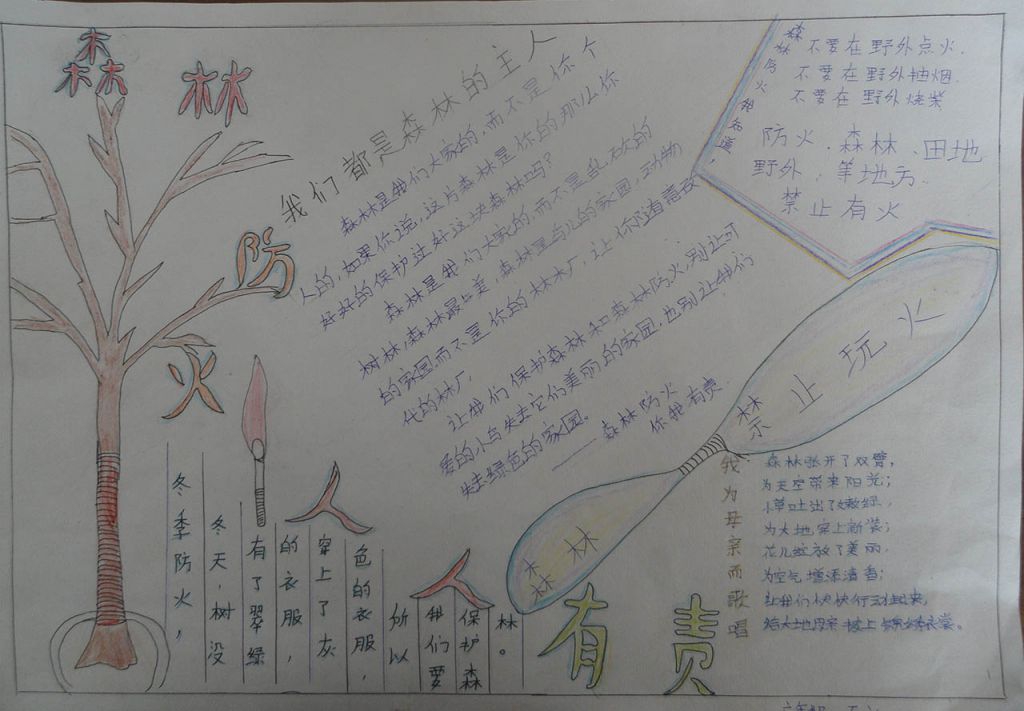 森林
防
火
人
人
有责
我们都是森林的主人
森林是我们大家的,而不是你个
人的,如果你说,这片森林是你的那么你
好好的保护过好这块森林吗?
森林是我们大家的,而不是乱砍的
树林,森林最美,森林是鸟儿的家园,动物
的家园而不是你的林木厂,让你随着高故
代的林厂
让我们保护森林和森林防火,别让可
爱的小鸟失去它们美丽的家园,也别让我们
失去绿色的家园。
——森林防火
你我有责
森林防火我知道,
不要在野外点火.
不要在野外抽烟.
不要在野外烧柴
防火.森林、田地
野外,等地方.
禁止有火
禁止玩火
森林
冬季防火,
冬天,树没
有了翠绿
的衣服,
穿上了灰
色的衣服,
所以
我们要
保护森
林。
我为母亲而歌唱
森林张开了双臂,
为天空带来阳光;
小草吐出了嫩绿,
为大地穿上新装;
花儿绽放了美丽,
为空气增添清香;
让我们快快行动起来,
给大地母亲披上锦绣衣裳。